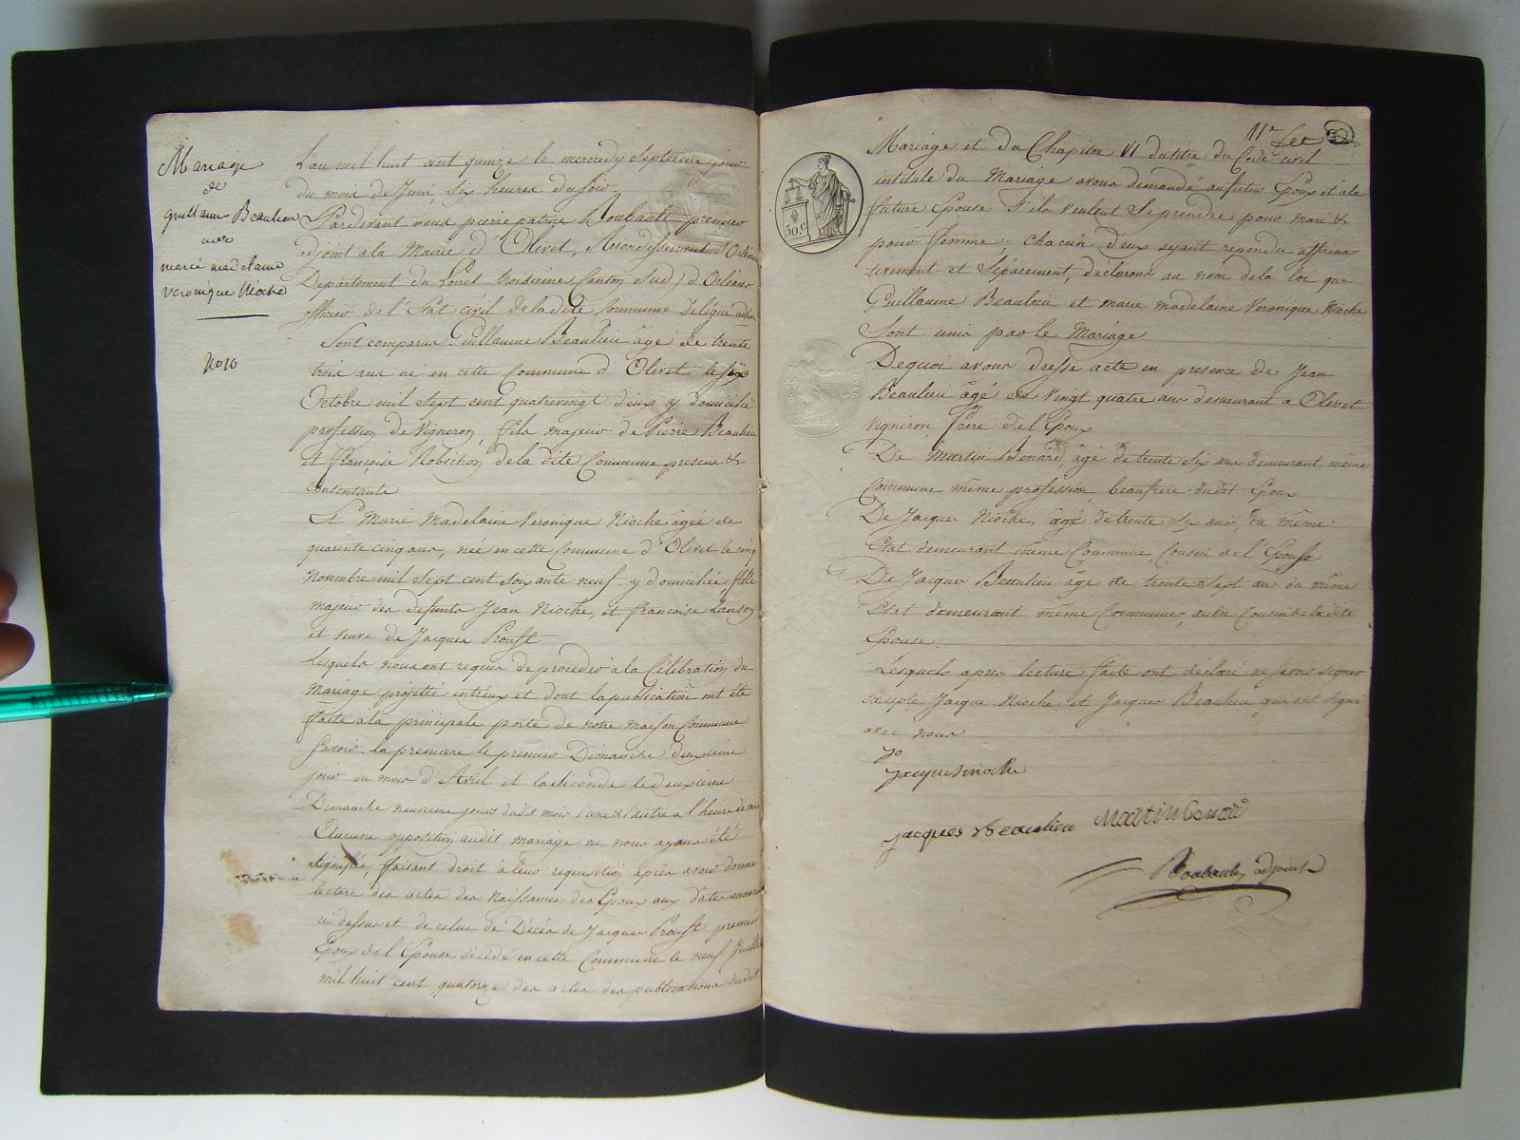 Mariage
de
guillaume Beaulieu
avec
marie madelaine
veronique Nioche
No 10
L'an mil huit cent quinze le mercredy septieme jour
du mois de Juin, six heures du soir
Pardevant nous pierre patrice Roubault premier
adjoint a la Mairie d'Olivet, Arrondissement d'Orléans
Département du Loiret troisieme Canton Sud d'Orléans
officier de l'Etat civil de la dite Commune délégué
Sont comparus Guillaume Beaulieu âgé de trente
trois ans né en cette Commune d'Olivet le six
Octobre mil sept cent quatrevingt deux y domicilié
profession de Vigneron, fils majeur de Pierre Beaulieu
et françoise Robichon de la dite Commune presens &
consentants
Et Marie Madelaine Veronique Nioche âgée de
quarente cinq ans, née en cette Commune d'Olivet le cinq
Novembre mil sept cent soixante neuf y domiciliée fille
majeur des defunts Jean Nioche, et francoise
et veuve de Jacques Proust
Lesquels nous ont requis de procéder à la Célébration du
Mariage projetté entreux et dont les publications ont été
faite a la principale porte de notre maison Commune
Savoir la premiere le premier Dimanche deuxieme
jour du mois d'Avril et la seconde le deuxieme
Dimanche neuvieme jour dudit mois l'une & l'autre a l'heure de midi
Aucune opposition audit mariage ne nous ayant été
signifiée, faisant droit à leur requisition après avoir donné
lecture des actes des Naissances des Epoux aux dates
ci dessus et de celui de Décés de Jacques Proust premier
Epoux de l'Epouse décédé en cette Commune le neuf Juillet
mil huit cent quatorze des actes des publications dudit
11e
50 c
Mariage et du Chapitre VI du titre du Code civil
intitulé du Mariage avons demandé au futur Epoux et à la
future Epouse s'ils veulent se prendre pour mari &
pour femme; chacun d'eux ayant repondu affirma
tivement et séparement, declarons au nom de la loi que
Guillaume Beaulieu et marie madelaine Veronique Nioche
Sont unis par le Mariage
De quoi avons dressé acte en presence de Jean
Beaulieu âgé de vingt quatre ans demeurant a Olivet
vigneron, frere de l'Epoux
De Martin Benard, âgé de trente six ans demeurant même
Commune même profession beaufrere dudit Epoux
De Jacques Nioche, âgé de trente six ans, du même
Etat demeurant même Commune, Cousin de l'Epouse
De Jacques Beaulieu âgé de trente sept ans du même
Etat demeurant même Commune, autre Cousin de la dite
Epouse.
Lesquels après lecture faite ont déclaré ne savoir signer
excepté Jacques Nioche et Jacques Beaulieu qui ont signé
avec nous
Jacques nioche
jacques Beaulieu Martin Benard
Roubault adjoint